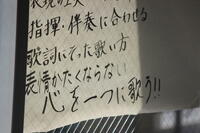 指揮・伴奏に合わせる
歌詞にそった歌い方
表情がかたくならない
心を一つに歌う!!